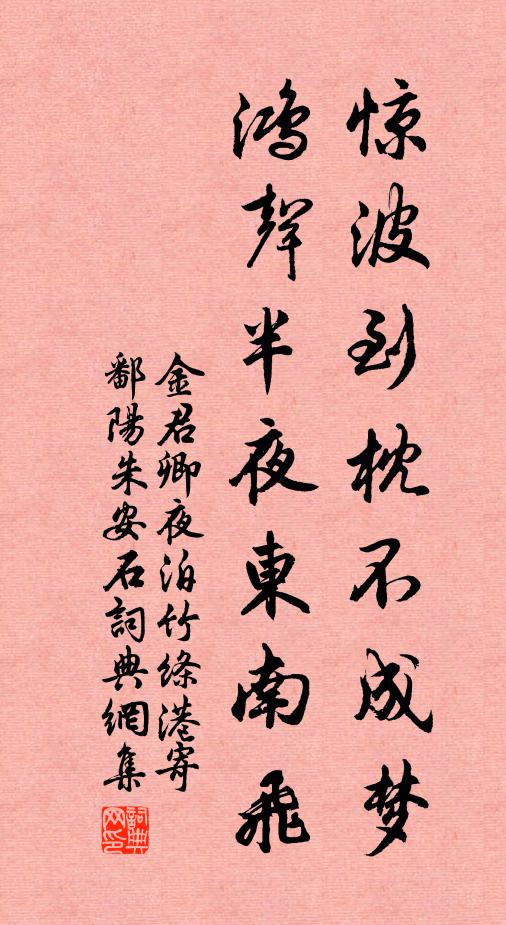 惊波到枕不成梦
鸿聲半夜東南飛
金君卿夜泊竹绦港寄
鄱陽朱安石詞典網集
詞典网印